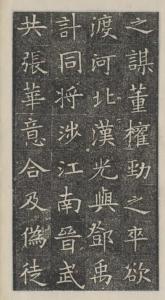 之謀董權勸之卒欲
渡河北漢光與鄧禹
計同将涉江南晉武
共張華意合及偽徒